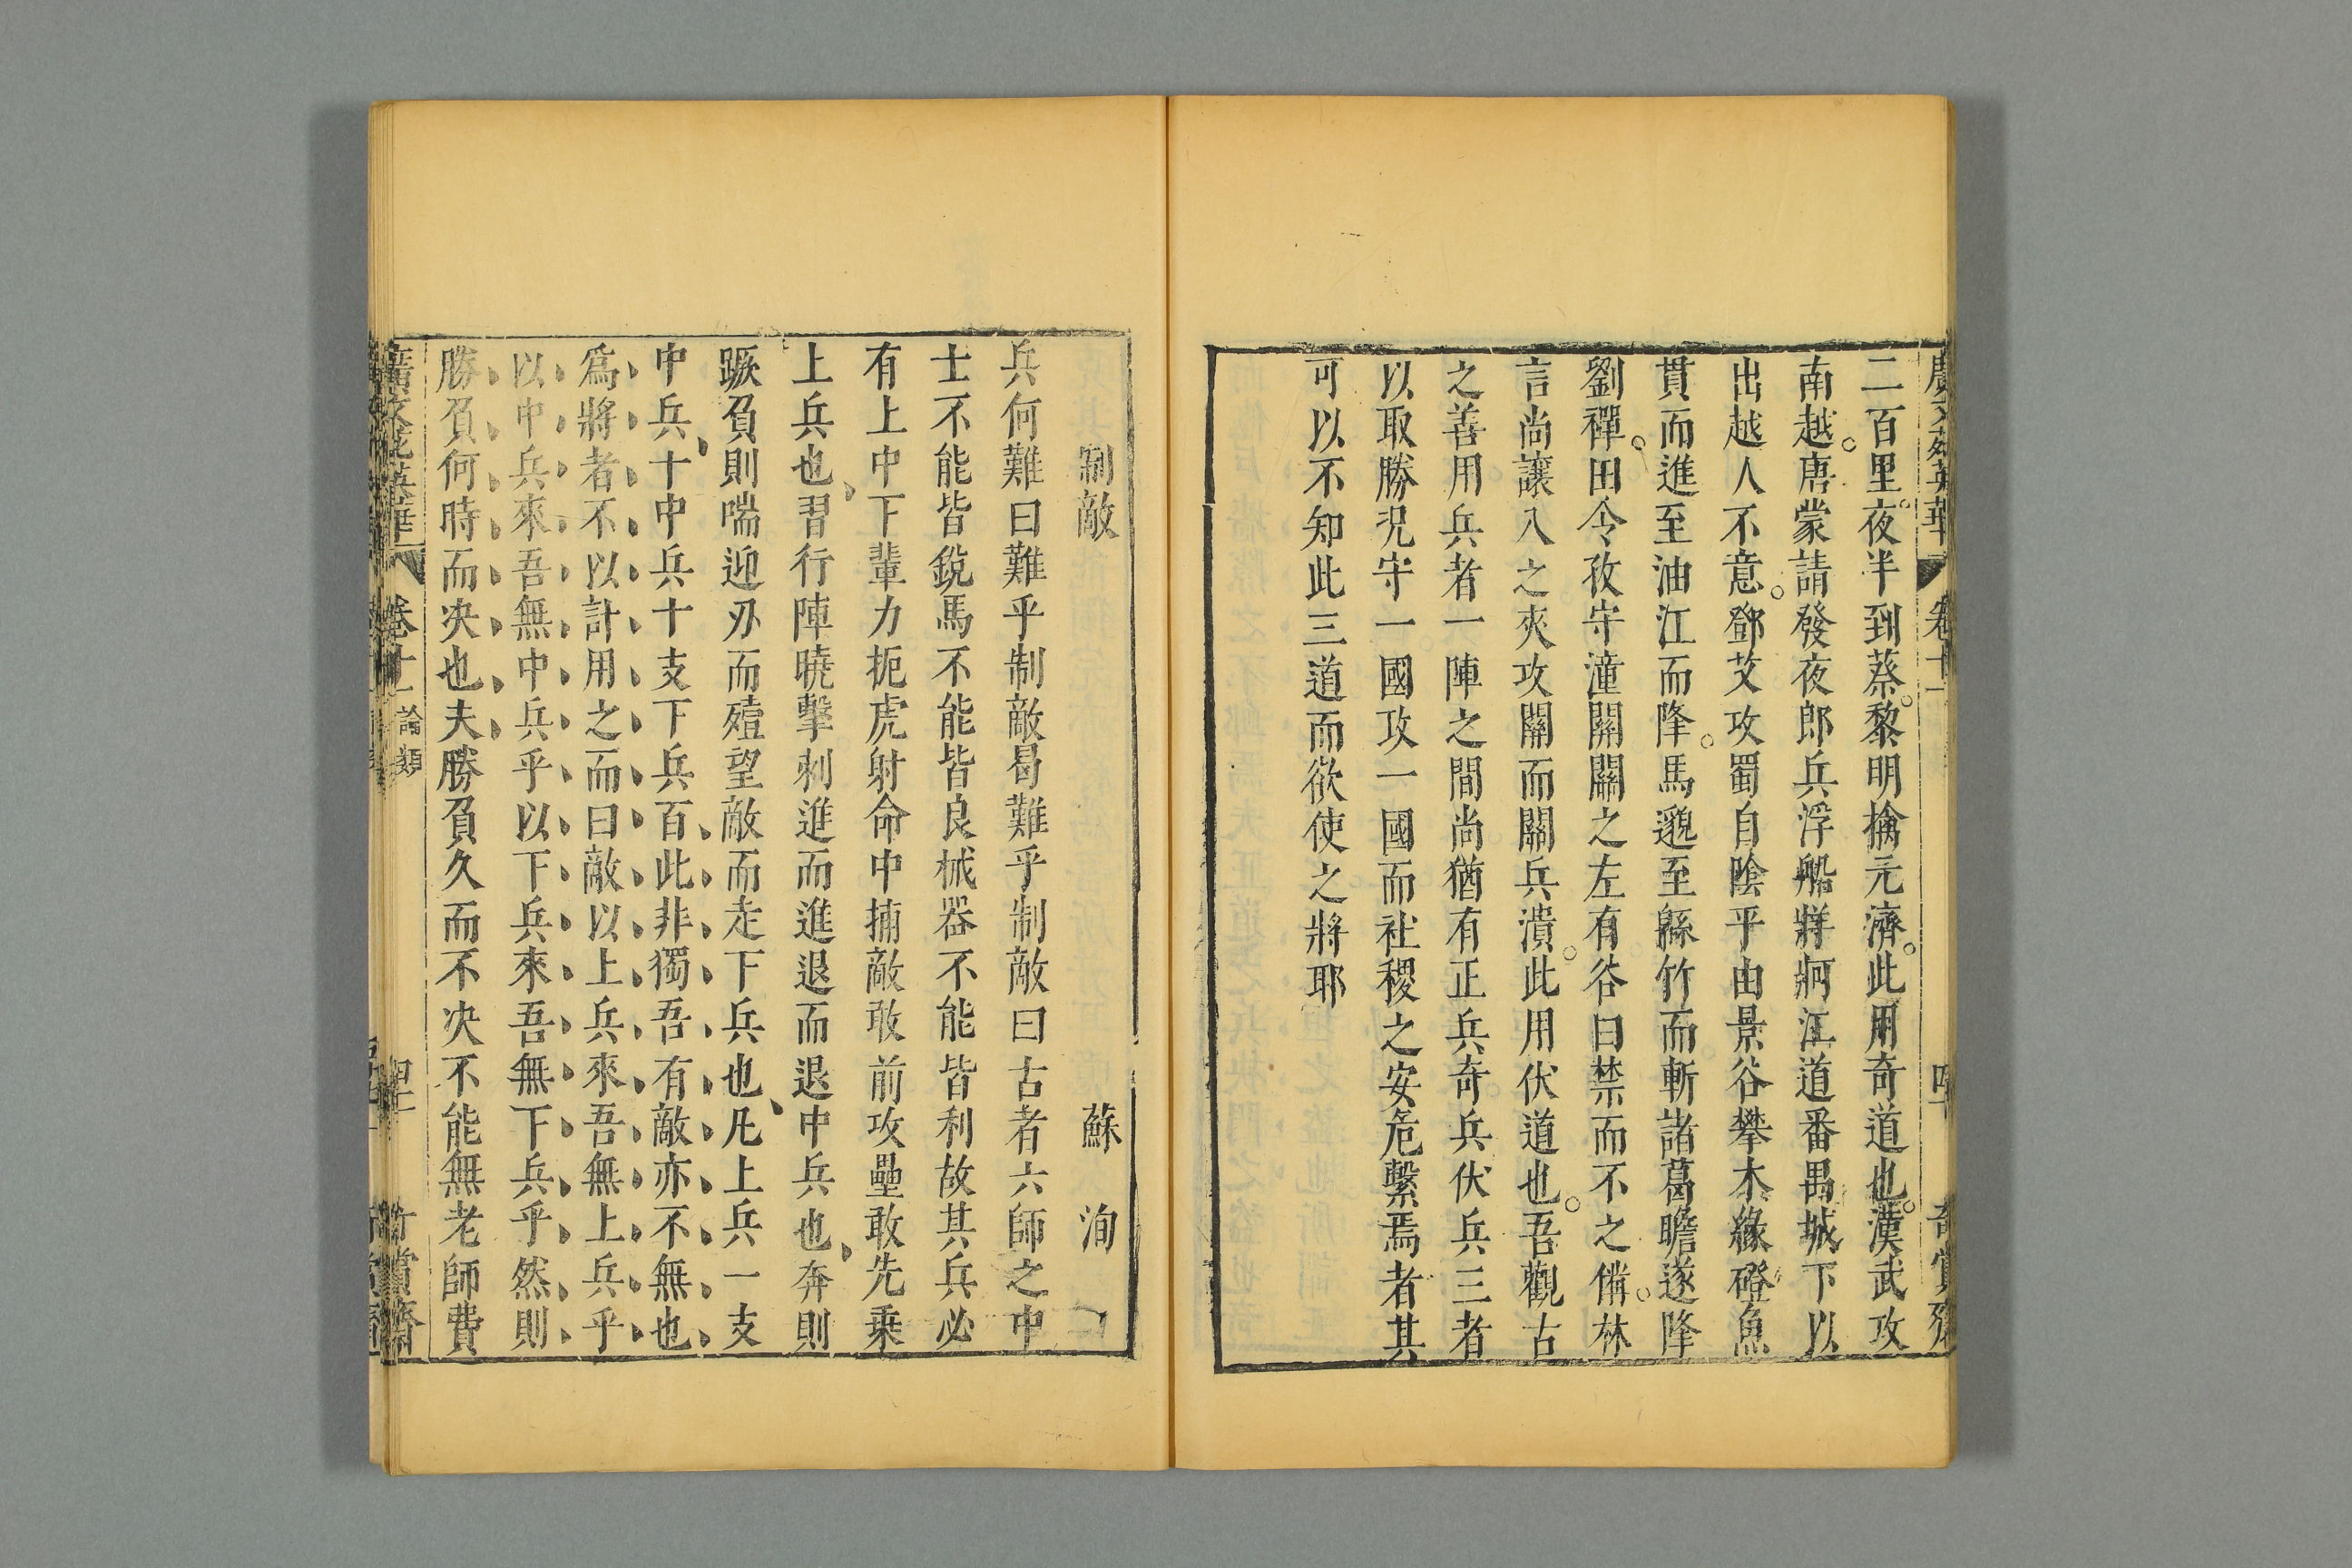 二百里夜半到蔡黎明擒元濟此用奇道也漢武攻
南越唐蒙請發夜郎兵浮船牂牁江道番禺城下以
出越人不意鄧艾攻蜀自陰平由景谷攀木緣磴魚
貫而進至油江而降馬邈至緜竹而斬諸葛瞻遂降
劉禪田令孜守潼關關之左有谷曰禁而不之備林
言尚讓入之夾攻關而關兵潰此用伏道也吾觀古
之善用兵者一陣之間尚猶有正兵奇兵伏兵三者
以取勝況守一國攻一國而社稷之安危繫焉者其
可以不知此三道而欲使之將耶
制敵 蘇洵
兵何難曰難乎制敵曷難乎制敵曰古者六師之中
士不能皆銳馬不能皆良械器不能皆利故其兵必
有上中下輩力扼虎射命中捕敵敢前攻壘敢先乗
上兵也習行陣曉擊刺進而進退而退中兵也奔則
蹶負則喘迎刃而殪望敵而走下兵也凡上兵一支
中兵十中兵十支下兵百此非獨吾有敵亦不無也
爲將者不以計用之而曰敵以上兵來吾無上兵乎
以中兵來吾無中兵乎以下兵來吾無下兵乎然則
勝負何時而决也夫勝負久而不决不能無老師費
廣文苑英華 卷十一 論類 奇賞齋